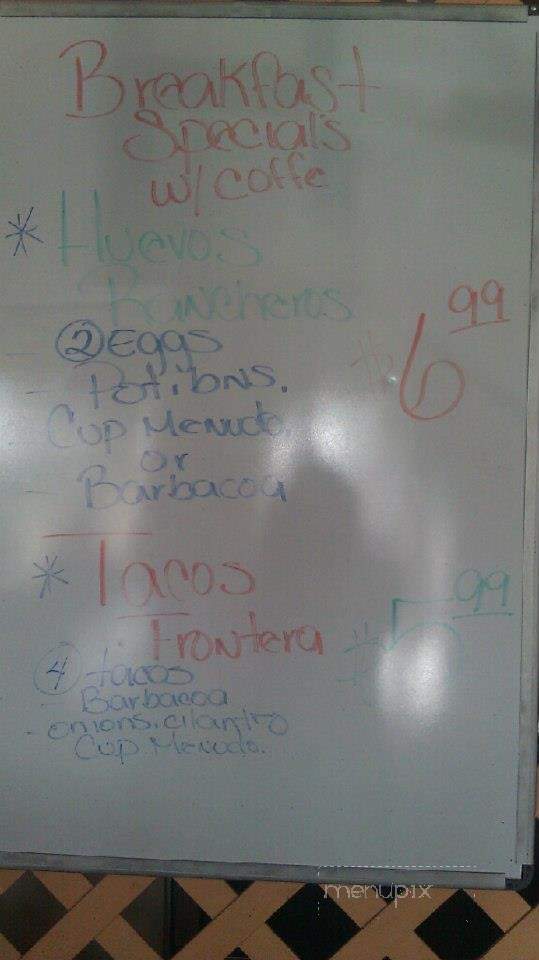 Breakfast
Special's
w/ coffe
* Huevos
Rancheros
$6 99
② Eggs
- Pot. bns.
Cup Menudo
or
Barbacoa
* Tacos
Frontera
$5 99
④ tacos
- Barbacoa
- onions. cilantro
Cup Menudo.
menupix